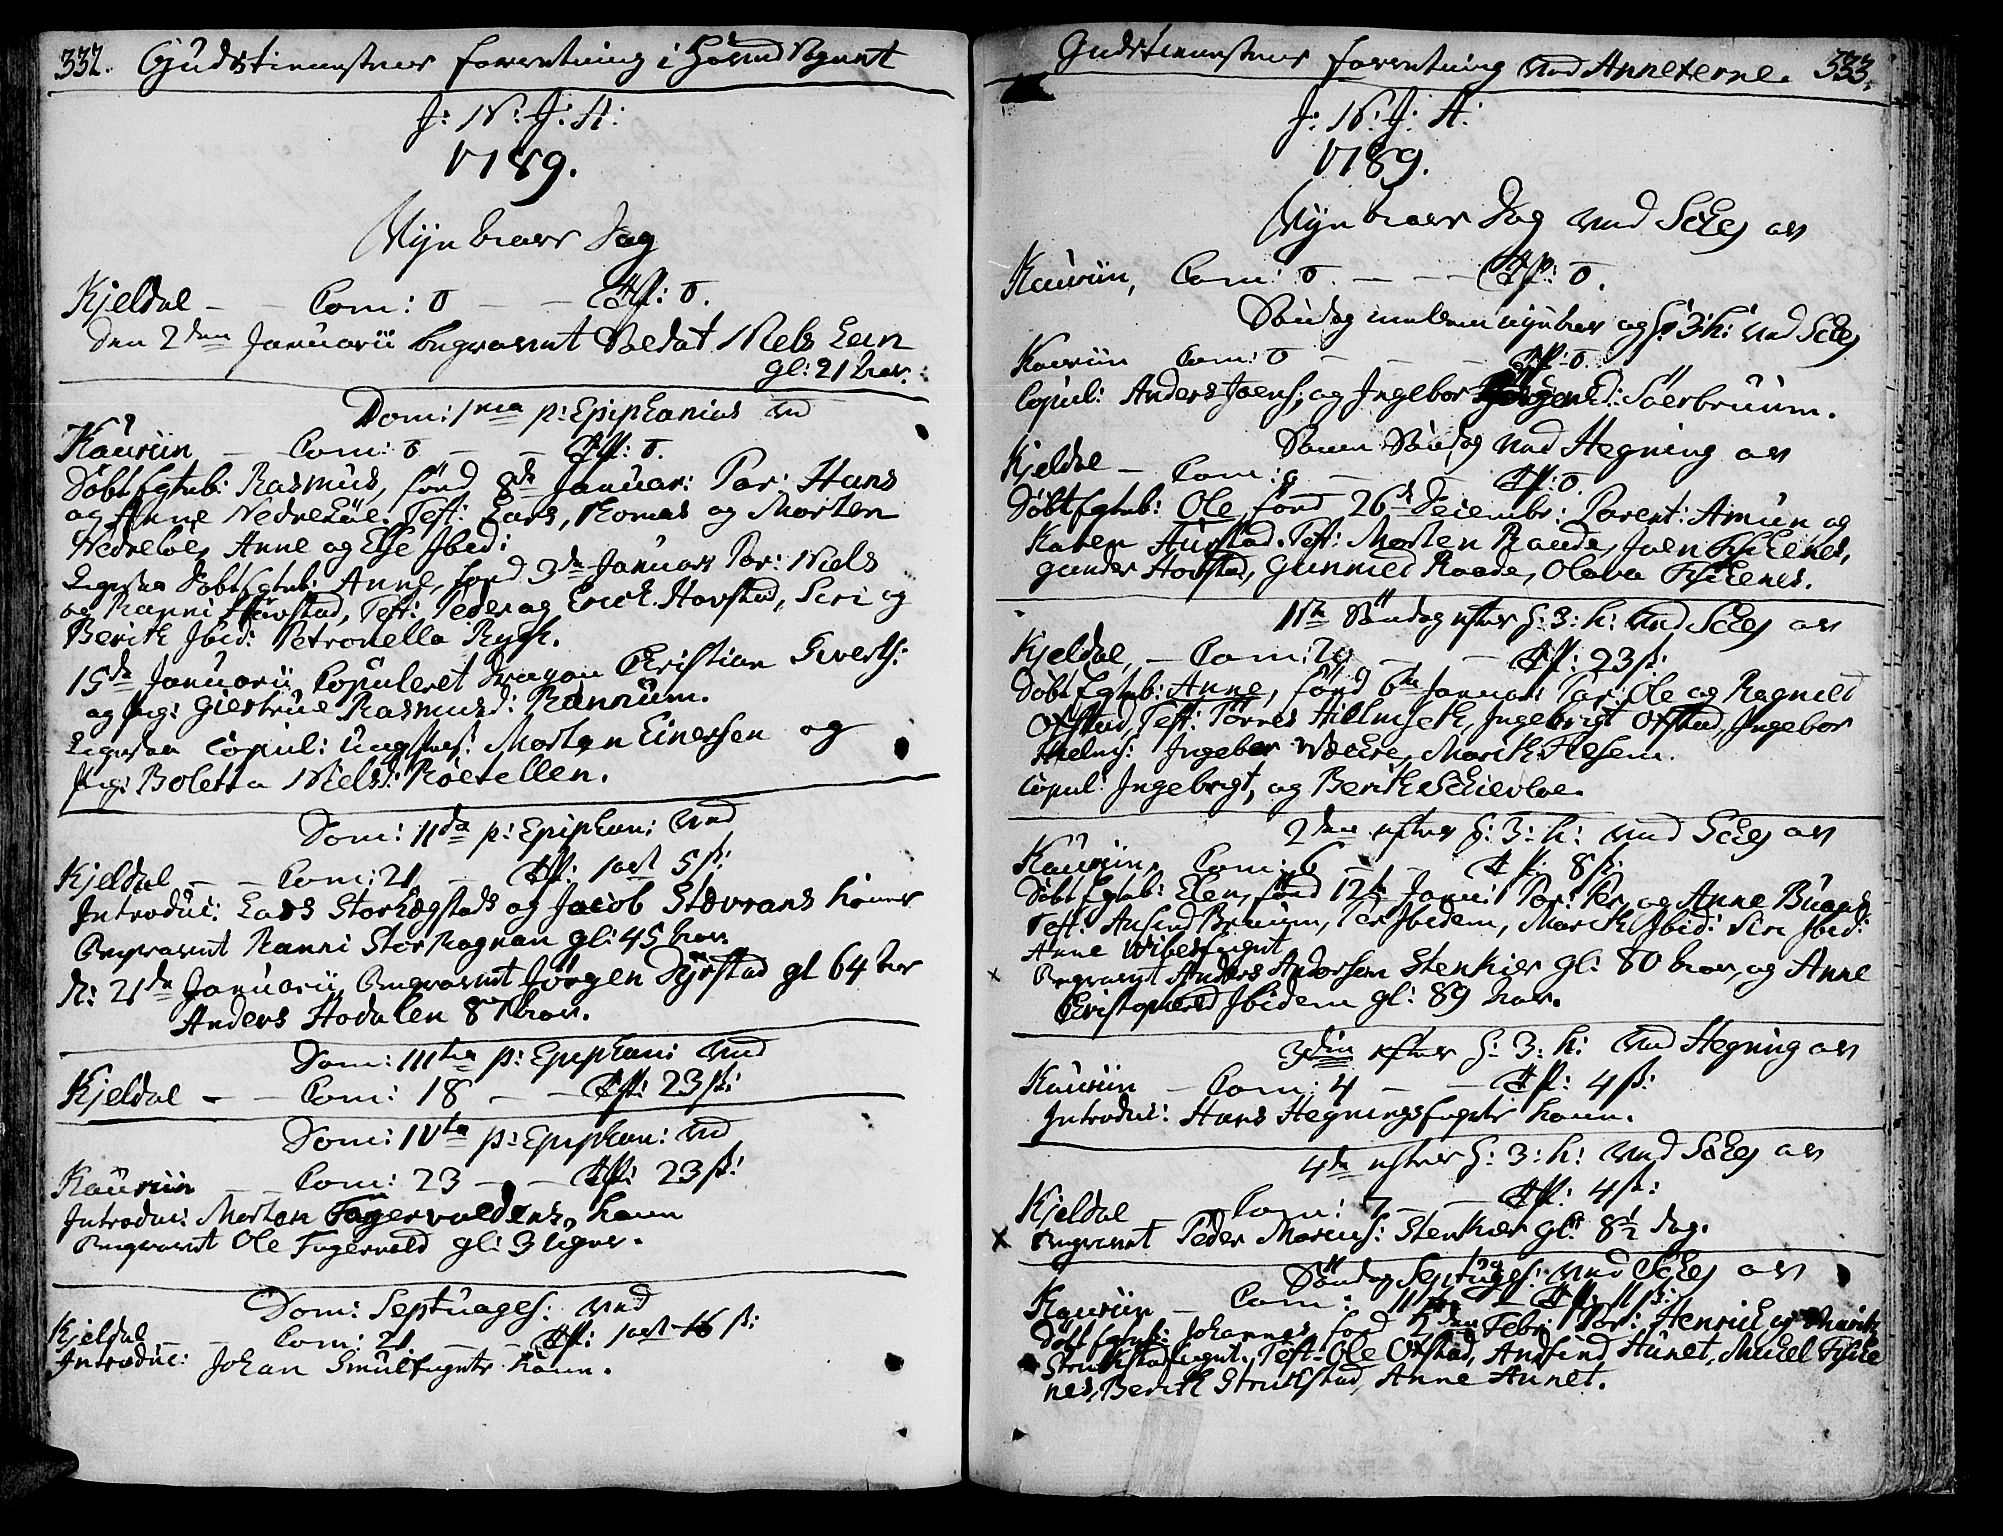 332. Gudstienestens forretning i Hoved Sognet
J: N: J: A:
1789.
Nyt Aars Dag
Kjeldal - - Com: 0 - - Off: 0.
Den 2den Januarii begravet Soldat Niels Lein
gl: 21 aar.
Dom: 1ma p: Epiphanias ved
Kauriin - Com: 0 - - Off: 0.
Døbt Egteb: Rasmus, fød 8de Januar: Par: Hans
og Anne Nedreløe. Test: Lars, Tomas og Morten
Nedreloe, Anne og Else Ibid:
Ligesaa Døbt Egteb: Anne, fød 3de Januar Par: Niels
og Ranni Havstad, Test: Peder og Erich Havstad, Siri og
Berith Ibid: Petronella Rygh.
15de Januarii Copuleret Dragon Christian Siverts:
og Pig: Giertrue Rasmusd: Rannum.
Ligesaa Copul: Ungkarl: Morten Einersen og
Pig: Boletta Nielsd: Røetellen.
Dom: 11da p: Epiphan: ved
Kjeldal - - Com: 21 - Off: 1 ort 5 ß:
Introduc: Lars Storhegstads og Jacob Stavrans koner
Begravet Ranni Storhognan gl: 45 aar.
D: 21de Januarii, Begravet Jørgen Tyrstad gl 64 aar
Anders Hodalen 87 aar.
Dom: 111tia p: Epiphan: ved
Kjeldal - - Com: 18 - - Off: 23 ß:
Dom: 1Vta p: Epiphan: ved
Kauriin - - Com: 23 - - Off: 23 ß:
Introduc: Morten Fagervoldens, kone
Begravet Ole Fagervold gl: 3 Uger.
Dom: Septuages: ved
Kjeldal - - Com: 21 - Off: 1 ort 16 ß:
Introduc: Johan Smulejets kone.
Gudstienestens forretning ved Annexerne. 333.
J: N: J: A:
1789.
Nyt Aars Dag ved Schej av
Kauriin, Com: 0 - - - Off: 0.
Søndag mellem nytaar og H: 3: K: ved Schej
Kauriin Com: 0 - - - Off: 0.
Copul: Anders Joens: og Ingebor Søerbruum.
Samme Søndag ved Hegning av
Kjeldal - Com: 9 - - Off: 0.
Døbt Egteb: Ole, fød 26de Decembr: Parent: Amun og
Karen Aurstad. Test: Morten Raade, Joen Fischenes,
Gunder Hovstad, Gunnild Raade, Olava Fischenes.
11te Søndag efter H: 3: K: ved Schej av
Kjeldal, - Com: 20 - - Off: 23 ß:
Døbt Egteb: Anne, fød 6te Januar: Par: Ole og Ragnild
Oxstad, Test: Tørres Hielmseth, Ingebrigt Oxstad, Ingebor
Hielms: Ingebor Wæhre, Marith Flesem.
Copul: Ingebrigt, og Berith Schiefloe.
2den efter H: 3: K: ved Schej av
Kauriin, Com: 6 - - Off: 8 ß:
Døbt Egteb: Elen, fød 12te Janv: Par: Per og Anne Buaas.
Test: Ansind Bruum, Per Ibidem, Marith Ibid: Siri Ibid:
Anne Wibesejet
x Begravet Anders Andersen Stenkier gl: 80 aar, og Anne
Christophersd Ibidem gl: 89 aar.
3die efter H: 3: K: ved Hegning av
Kauriin - Com: 4 - - Off: 4 ß:
Introduc: Hans Hegningsejets kone.
4de efter H: 3: K: ved Schej av
Kjeldal - Com: 7 - - Off: 4 ß:
x Begravet Peder Morens: Stenkier gl: 8½ Dag.
Søndag Septuages: ved Schej av
Kauriin - Com: 11 - Off: 11 ß:
Døbt Egteb: Johannes fød 2den Febr: Par: Henrich og Marith
Strukstadejet. Test: Ole Oxstad, Ansind Aunet, Michel Fische
nes, Berith Strukstad, Anne Aunet.